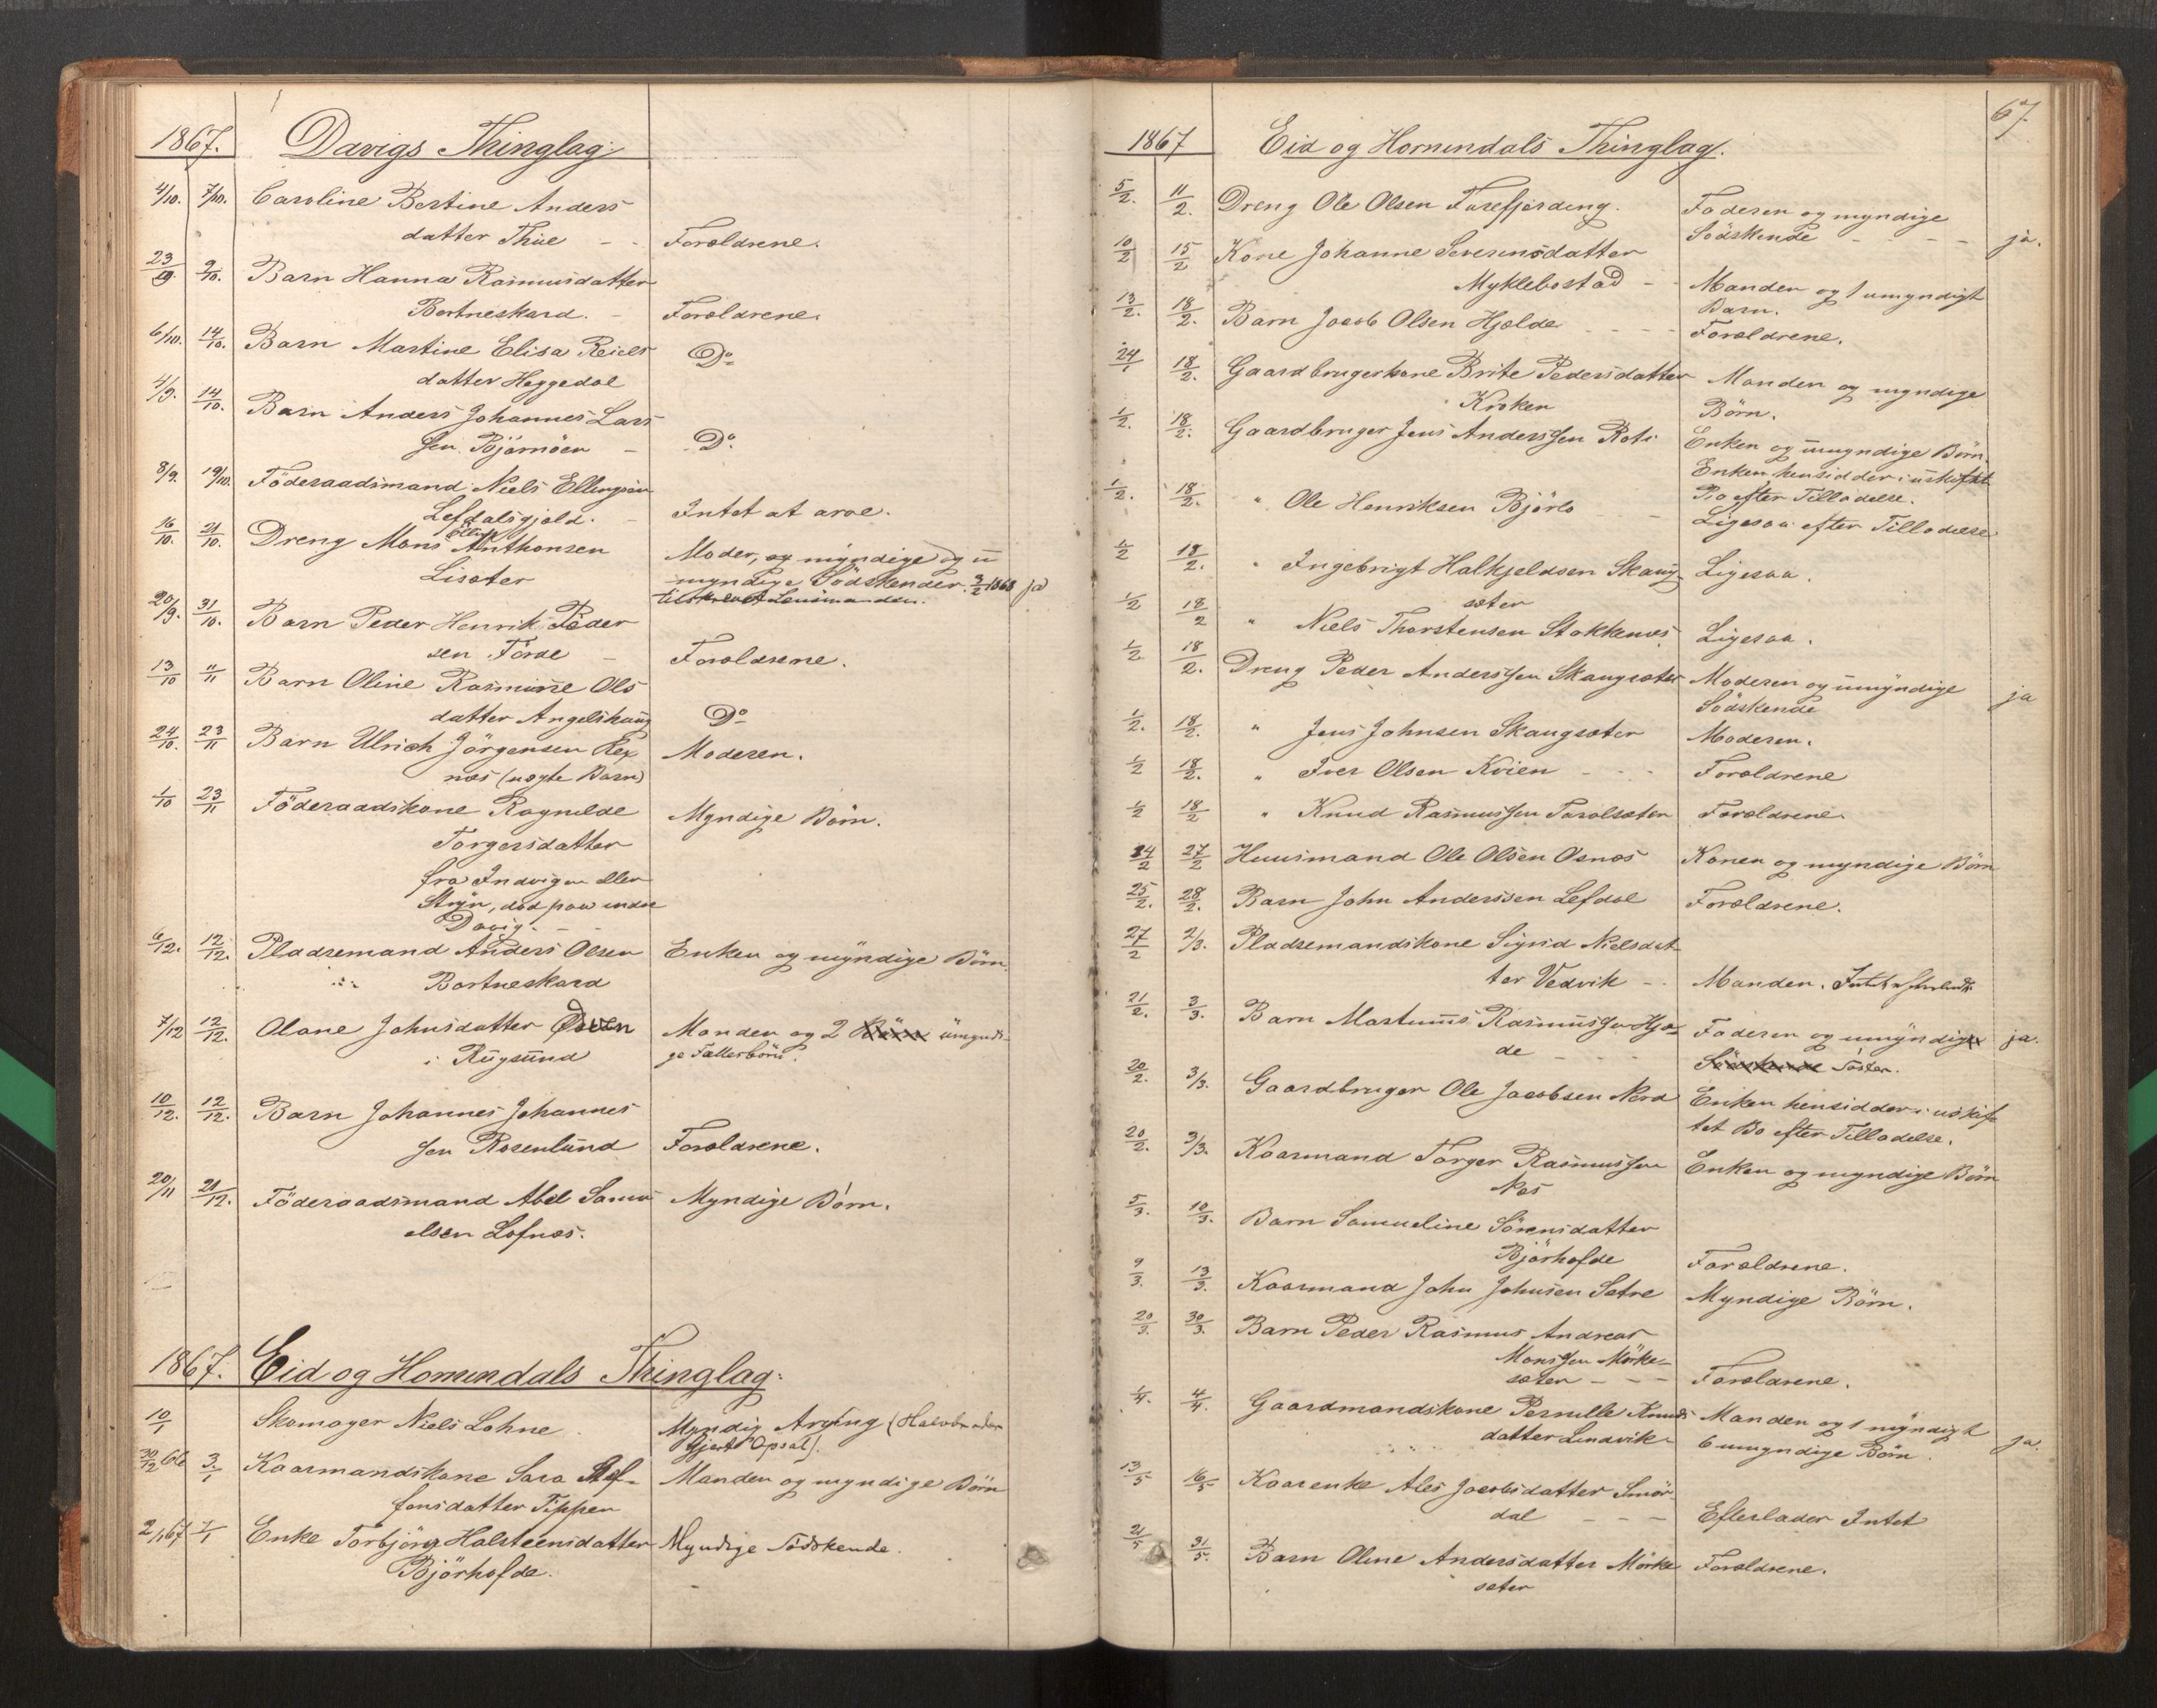 1867. Davigs Thinglag.
4/10. 7/10. Caroline Bertine Anders
datter Thue - - Forældrene.
23/9. 9/10. Barn Hanna Rasmusdatter
Bortneskard. - Forældrene.
6/10. 14/10. Barn Martine Elisa Reiels Do
datter Heggedal
4/9. 14/10. Barn Anders Johannes Lars
sen Björnöen - Do.
8/9. 19/10. Föderaadsmand Niels Ellingsen
Lefdalsgjeld. - Intet at arve.
16/10. 21/10. Dreng Mons Anthonsen Moder, og myndige og u
Lisæter myndige Södskender. 3/2 1868 ja
tilskrevet Lensmanden.
20/9. 31/10. Barn Peder Henrik Peder
sen Förde - Forældrene.
13/10 11/11 Barn Oline Rasmine Ols
datter Angelskaug Do
24/10. 23/11 Barn Ulrich Jörgensen Rex Moderen.
næs (uægte Barn)
1/10 23/11 Föderaadskone Ragnilde Myndige Börn.
Torgersdatter
fra Indvigen eller
Stryn, död paa indre
Davig. - -
6/12. 12/12. Pladsemand Anders Olsen Enken og myndige Börn.
Bortneskard
7/12 12/12. Olane Johnsdatter Öoen Manden og 2 Börn umyndi-
i Rugsund ge Fællesbörn.
10/12. 12/12. Barn Johannes Johannes
sen Rosenlund Forældrene.
20/11 21/12. Föderaadsmand Abel Samu Myndige Börn.
elsen Lefnæs.
1867. Eid og Hornindals Thinglag.
10/1 Skomager Niels Lohne. Myndig Arving (Halvbroder
Gjert Opsal).
30/12 66 3/1 Kaarmandskone Sara Stef- Manden og myndige Börn
fensdatter Tippen
2/1 67 7/1 Enke Torbjörg Halsteensdatter Myndige Södskende.
Björhofde.
67.
1867 Eid og Hornindals Thinglag.
5/2. 11/2. Dreng Ole Olsen Torefjerding. Faderen og myndige
Södskende - - - - ja.
10/2 15/2 Kone Johanne Severinsdatter
Myklebostad - - Manden og 1 umyndigt
Barn.
13/2. 18/2. Barn Jacob Olsen Hjelde - - - - Forældrene.
24/1 18/2. Gaardbrugerkone Brite Pedersdatter Manden og myndige
Kroken Börn.
1/2. 18/2. Gaardbruger Jens Anderssen Roti Enken og umyndige Börn.
Enken hensidder i uskiftet
Bo efter Tilladelse.
1/2. 18/2. " Ole Henriksen Björlo - - Ligesaa efter Tilladelse
1/2 18/2. " Ingebrigt Halkjeldsen Skaug- Ligesaa.
sæter
1/2 18/2 " Niels Thorstensen Stokkenæs Ligesaa.
1/2 18/2. Dreng Peder Anderssen Skaugsæter Moderen og umyndige ja
Södskende
1/2. 18/2. " Jens Johnsen Skaugsæter Moderen.
1/2 18/2. " Iver Olsen Kvien - - - Forældrene
1/2 18/2 " Knud Rasmussen Taralsæter Forældrene.
24/2 27/2 Huusmand Ole Olsen Osnæs Konen og myndige Börn
25/2. 28/2. Barn John Anderssen Lefdal Forældrene.
27/2 2/3. Pladsemandskone Sigrid Nielsdat-
ter Vedvik - - Manden.
21/2. 3/3. Barn Martinus Rasmussen Hjel- Faderen og umyndige ja.
de - - - - Södskende Söster.
20/2. 3/3. Gaardbruger Ole Jacobsen Nord Enken hensidder i uskif-
tet Bo efter Tilladelse.
20/2. 3/3. Kaarmand Torger Rasmussen Enken og myndige Börn
Næs
5/3. 10/3. Barn Samueline Sörensdatter
Björhofde Forældrene.
9/3. 13/3. Kaarmand John Johnsen Sætre Myndige Börn.
20/3. 30/3. Barn Peder Rasmus Andreas
Monssen Mörke-
sæter - - - Forældrene.
1/4 4/4. Gaardmandskone Pernille Knuds Manden og 1 myndigt
datter Lundvik - 6 umyndige Börn. ja.
13/5 16/5 Kaarenke Ales Jacobsdatter Smör
dal - - - Efterlader Intet
21/5 31/5. Barn Oline Andersdatter Mörke Forældrene.
sæter